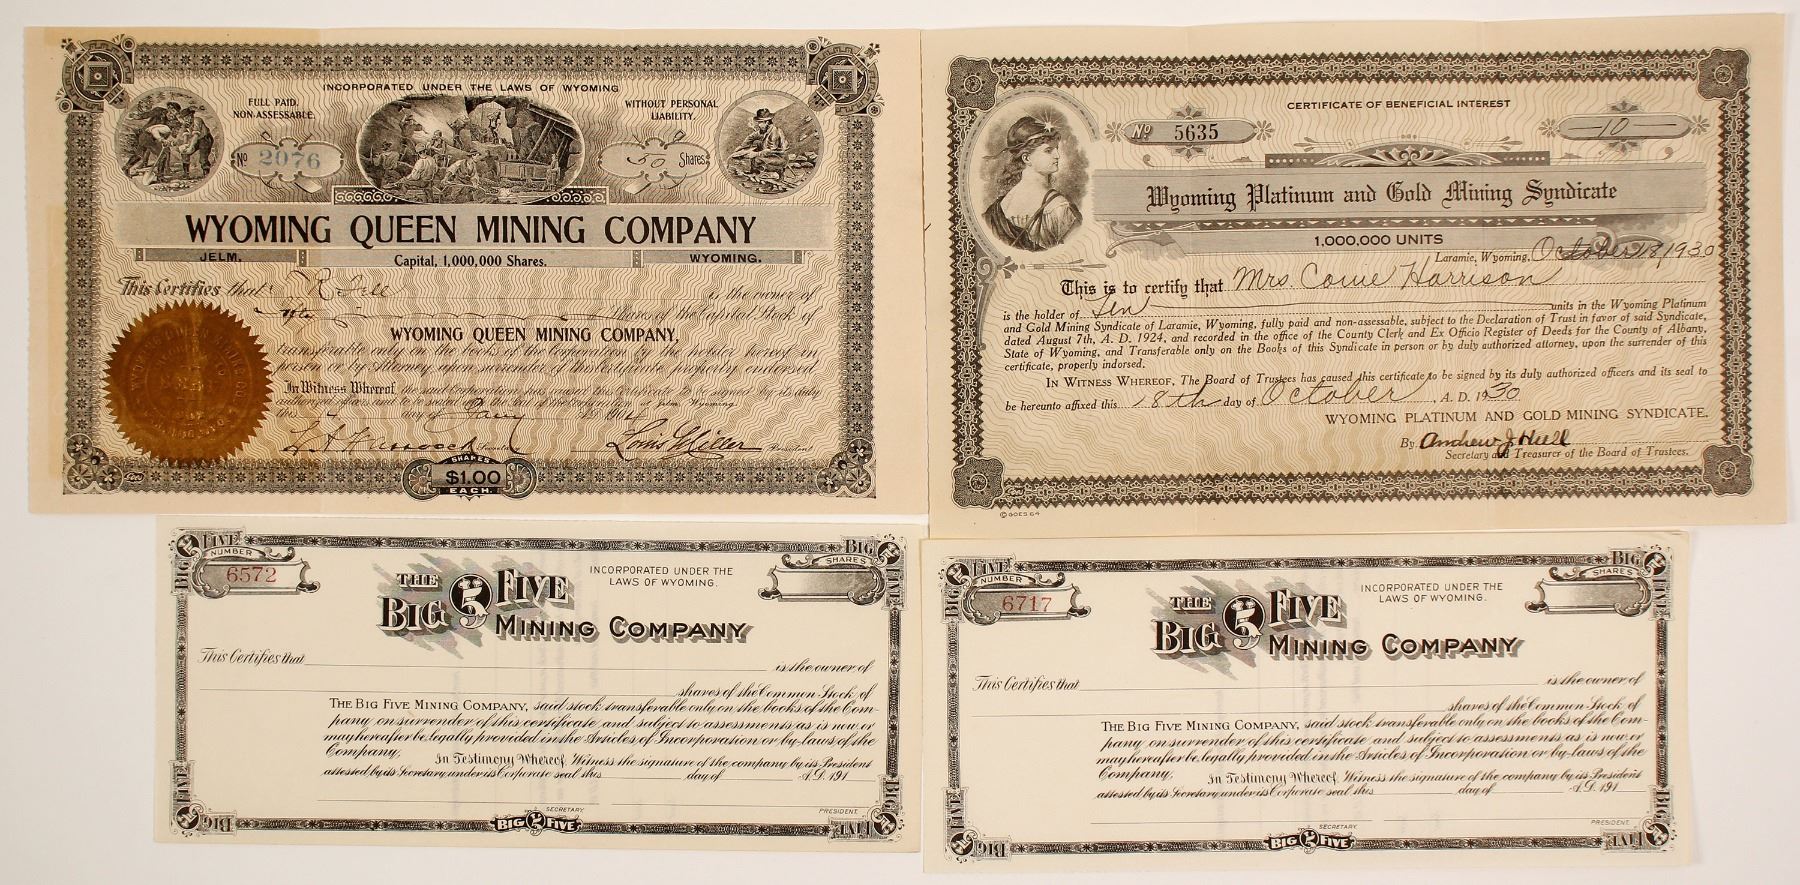 INCORPORATED UNDER THE LAWS OF WYOMING
FULL PAID, NON-ASSESSABLE.
WITHOUT PERSONAL LIABILITY.
No 2076
50 Shares
WYOMING QUEEN MINING COMPANY
JELM, Capital, 1,000,000 Shares. WYOMING.
This Certifies that is the owner of
Fifty Shares of the Capital Stock of
WYOMING QUEEN MINING COMPANY,
transferable only on the books of the Corporation by the holder hereof in
person or by Attorney upon surrender of this Certificate properly endorsed
In Witness Whereof, the said Corporation has caused this Certificate to be signed by its duly
authorized officers and to be sealed with the Seal of the Corporation at Jelm Wyoming
this day of
Louis Miller President
SHARES
$1.00
EACH
CERTIFICATE OF BENEFICIAL INTEREST
No 5635
10
Wyoming Platinum and Gold Mining Syndicate
1,000,000 UNITS
Laramie, Wyoming, October 18, 1930
This is to certify that Mrs. Harrison
is the holder of Ten units in the Wyoming Platinum
and Gold Mining Syndicate of Laramie, Wyoming, fully paid and non-assessable, subject to the Declaration of Trust in favor of said Syndicate,
dated August 7th, A. D. 1924, and recorded in the office of the County Clerk and Ex Officio Register of Deeds for the County of Albany,
State of Wyoming, and Transferable only on the Books of this Syndicate in person or by duly authorized attorney, upon the surrender of this
certificate, properly indorsed.
IN WITNESS WHEREOF, The Board of Trustees has caused this certificate to be signed by its duly authorized officers and its seal to
be hereunto affixed this 18th day of October, A. D. 1930
WYOMING PLATINUM AND GOLD MINING SYNDICATE.
By Andrew J Hull
Secretary and Treasurer of the Board of Trustees.
© GOES 64
BIG 5 FIVE
NUMBER
6572
THE BIG 5 FIVE
MINING COMPANY
INCORPORATED UNDER THE
LAWS OF WYOMING.
BIG 5
SHARES
This Certifies that is the owner of
shares of the Common Stock of
THE BIG FIVE MINING COMPANY, said stock transferable only on the books of the Com-
pany on surrender of this certificate and subject to assessments as is now or
may hereafter be legally provided in the Articles of Incorporation or by-laws of the
Company.
In Testimony Whereof, Witness the signature of the company by its President
attested by its Secretary under its Corporate seal this day of A.D. 191
SECRETARY
PRESIDENT
BIG
BIG 5 FIVE
FIVE
BIG 5 FIVE
NUMBER
6717
THE BIG 5 FIVE
MINING COMPANY
INCORPORATED UNDER THE
LAWS OF WYOMING.
BIG 5 FIVE
SHARES
This Certifies that is the owner of
shares of the Common Stock of
THE BIG FIVE MINING COMPANY, said stock transferable only on the books of the Com-
pany on surrender of this certificate and subject to assessments as is now or
may hereafter be legally provided in the Articles of Incorporation or by-laws of the
Company.
In Testimony Whereof, Witness the signature of the company by its President
attested by its Secretary under its Corporate seal this day of A.D. 191
SECRETARY
PRESIDENT
FIVE
BIG
BIG 5 FIVE
BIG
FIVE